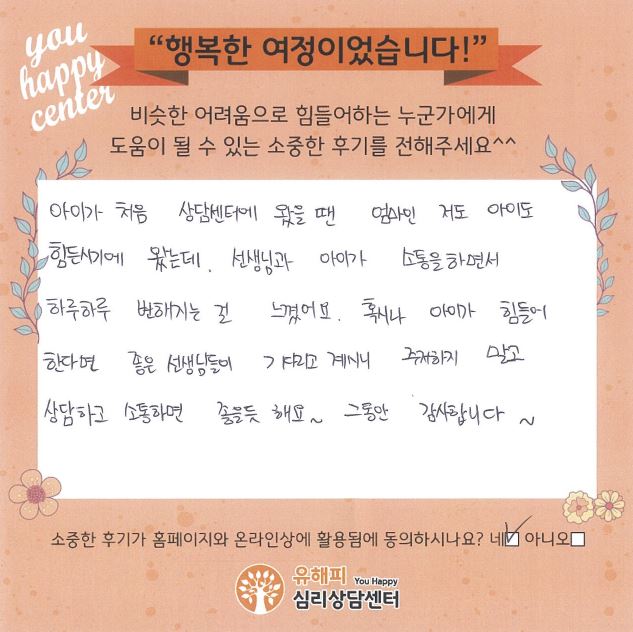 you
happy
center
“행복한 여정이었습니다!”
비슷한 어려움으로 힘들어하는 누군가에게
도움이 될 수 있는 소중한 후기를 전해주세요^^
아이가 처음 상담센터에 왔을 땐 엄마인 저도 아이도
힘든시기에 왔는데, 선생님과 아이가 소통을 하면서
하루하루 변해지는 걸 느꼈어요. 혹시나 아이가 힘들어
한다면 좋은 선생님들이 기다리고 계시니 주저하지 말고
상담하고 소통하면 좋을듯 해요~ 그동안 감사합니다~
소중한 후기가 홈페이지와 온라인상에 활용됨에 동의하시나요? 네☑ 아니오☐
유해피 You Happy
심리상담센터